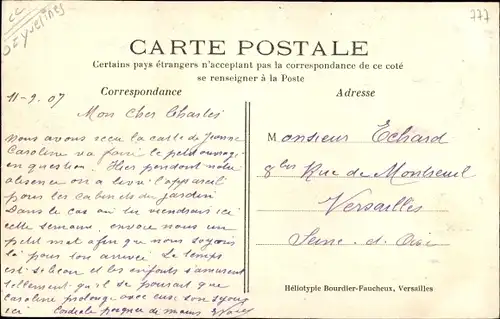 cc
Yvelines
777
CARTE POSTALE
Certains pays étrangers n'acceptant pas la correspondance de ce coté
se renseigner à la Poste
Correspondance
Adresse
11-9.07
Mon cher Charles
nous avons recu la carte de Jeanne
Caroline va faire le petit ouvrage
en question. Hier pendant notre
absence on a livré l'appareil
pour les cabinets du jardin
Dans le cas où tu viendrais ici
cette semaine, envoie nous un
petit mot afin que nous soyons
là pour ton arrivée Le temps
est si beau et les enfants s'amusent
tellement qu'il se pourrait que
Caroline prolonge avec eux son séjour
ici Cordiale poignée de mains
Monsieur Echard
9 bis Rue de Montreuil
Versailles
Seine-et-Oise
Héliotypie Bourdier-Faucheux, Versailles